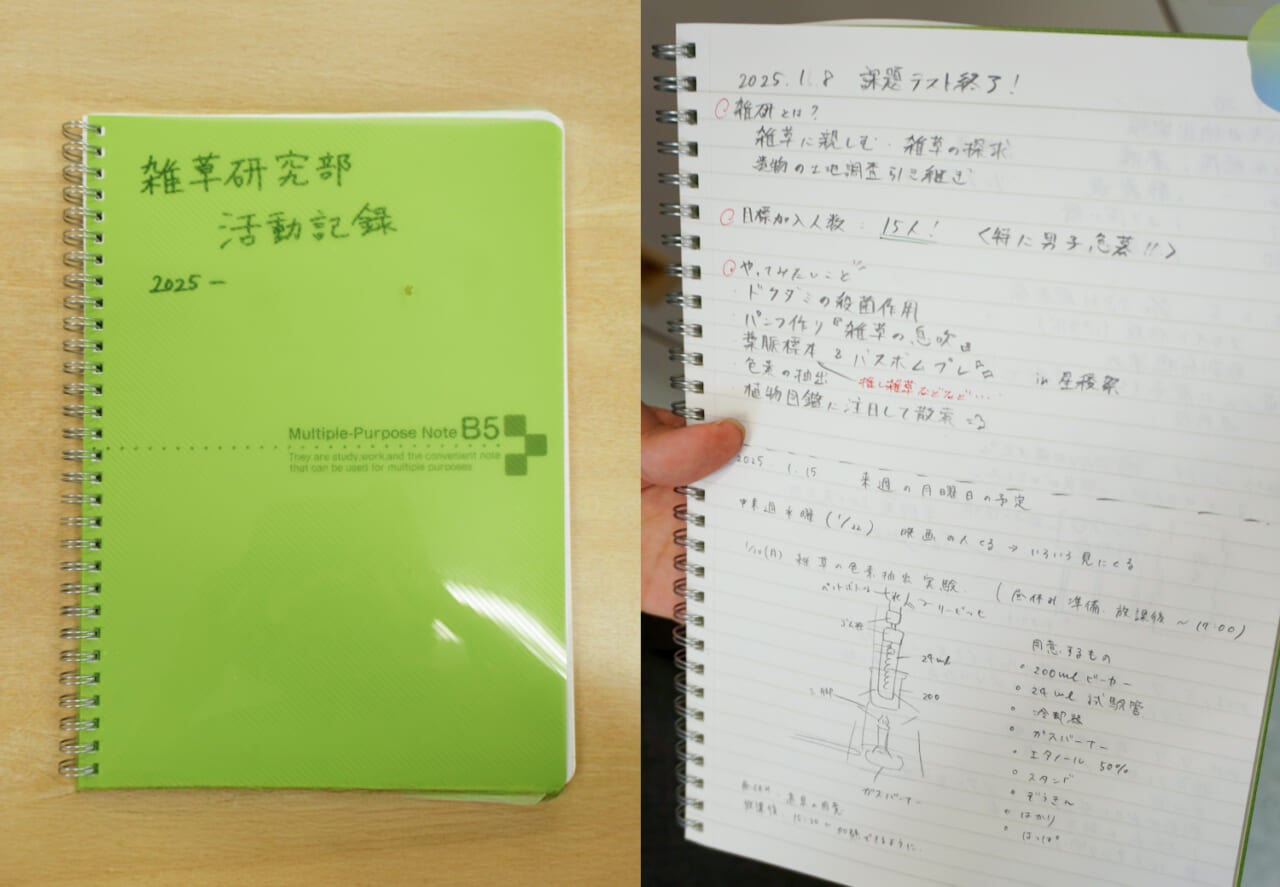 雑草研究部
活動記録
2025 —
Multiple-Purpose Note B5
They are study, work, and the convenient note
that can be used for multiple purposes
2025.1.8 課題テスト終了!
雑研とは?
雑草に親しむ・雑草の探求
の土地調査引き継ぎ
目標加入人数:15人! <特に男子急募!!>
やってみたいこと
・ドクダミの殺菌作用
・パンフ作り『雑草の息吹』
・葉脈標本 & バスボムプレ in 星稜祭
・色素の抽出 推し雑草などなど…
・植物図鑑に注目して散策する
2025.1.15 来週の月曜日の予定
来週水曜(1/22) 映画の人くる→いろいろ見にくる
1/20(月) 雑草の色素抽出実験 (昼休み準備、放課後~17:00)
ペットボトル
ゴム栓
24ml
200
ガスバーナー
用意するもの
・200mlビーカー
・24ml 試験管
・冷却器
・ガスバーナー
・エタノール 50%
・スタンド
・ぞうきん
・はかり
・はっぱ